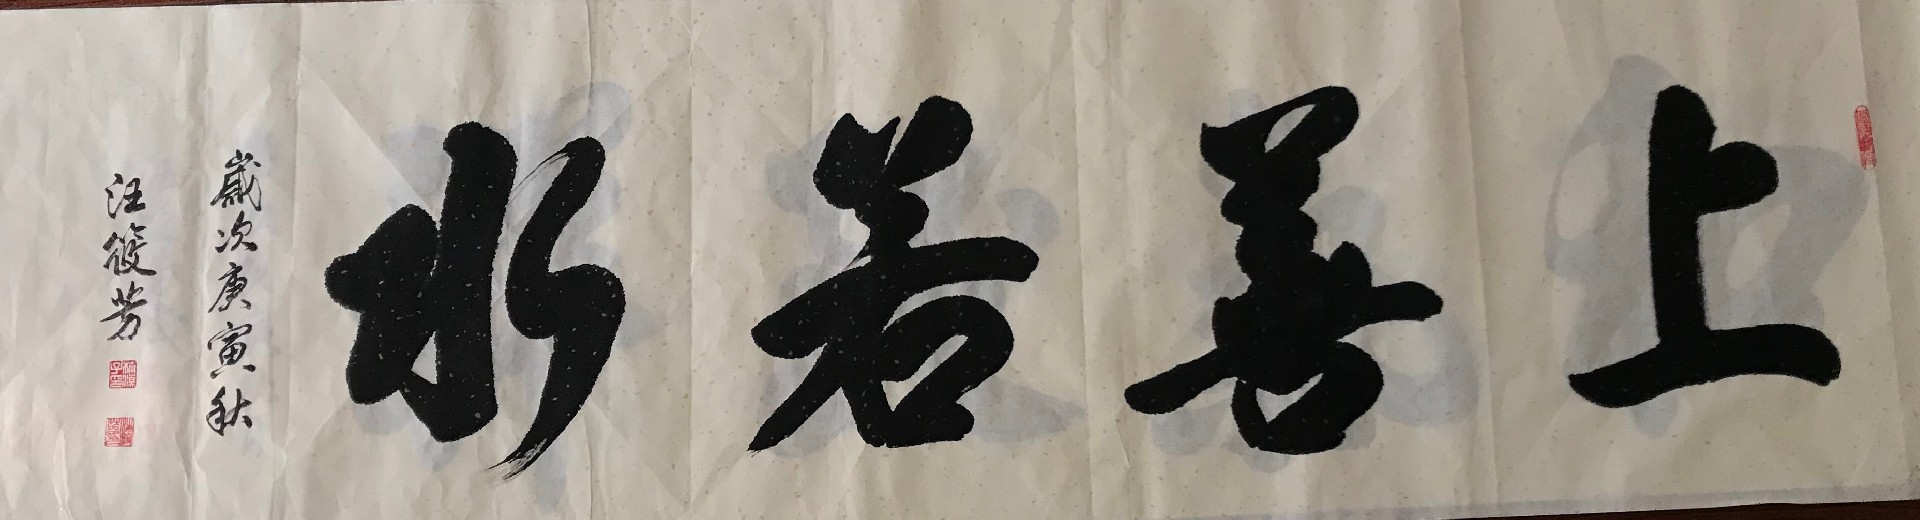 上善若水
歲次庚寅秋
汪筱芳